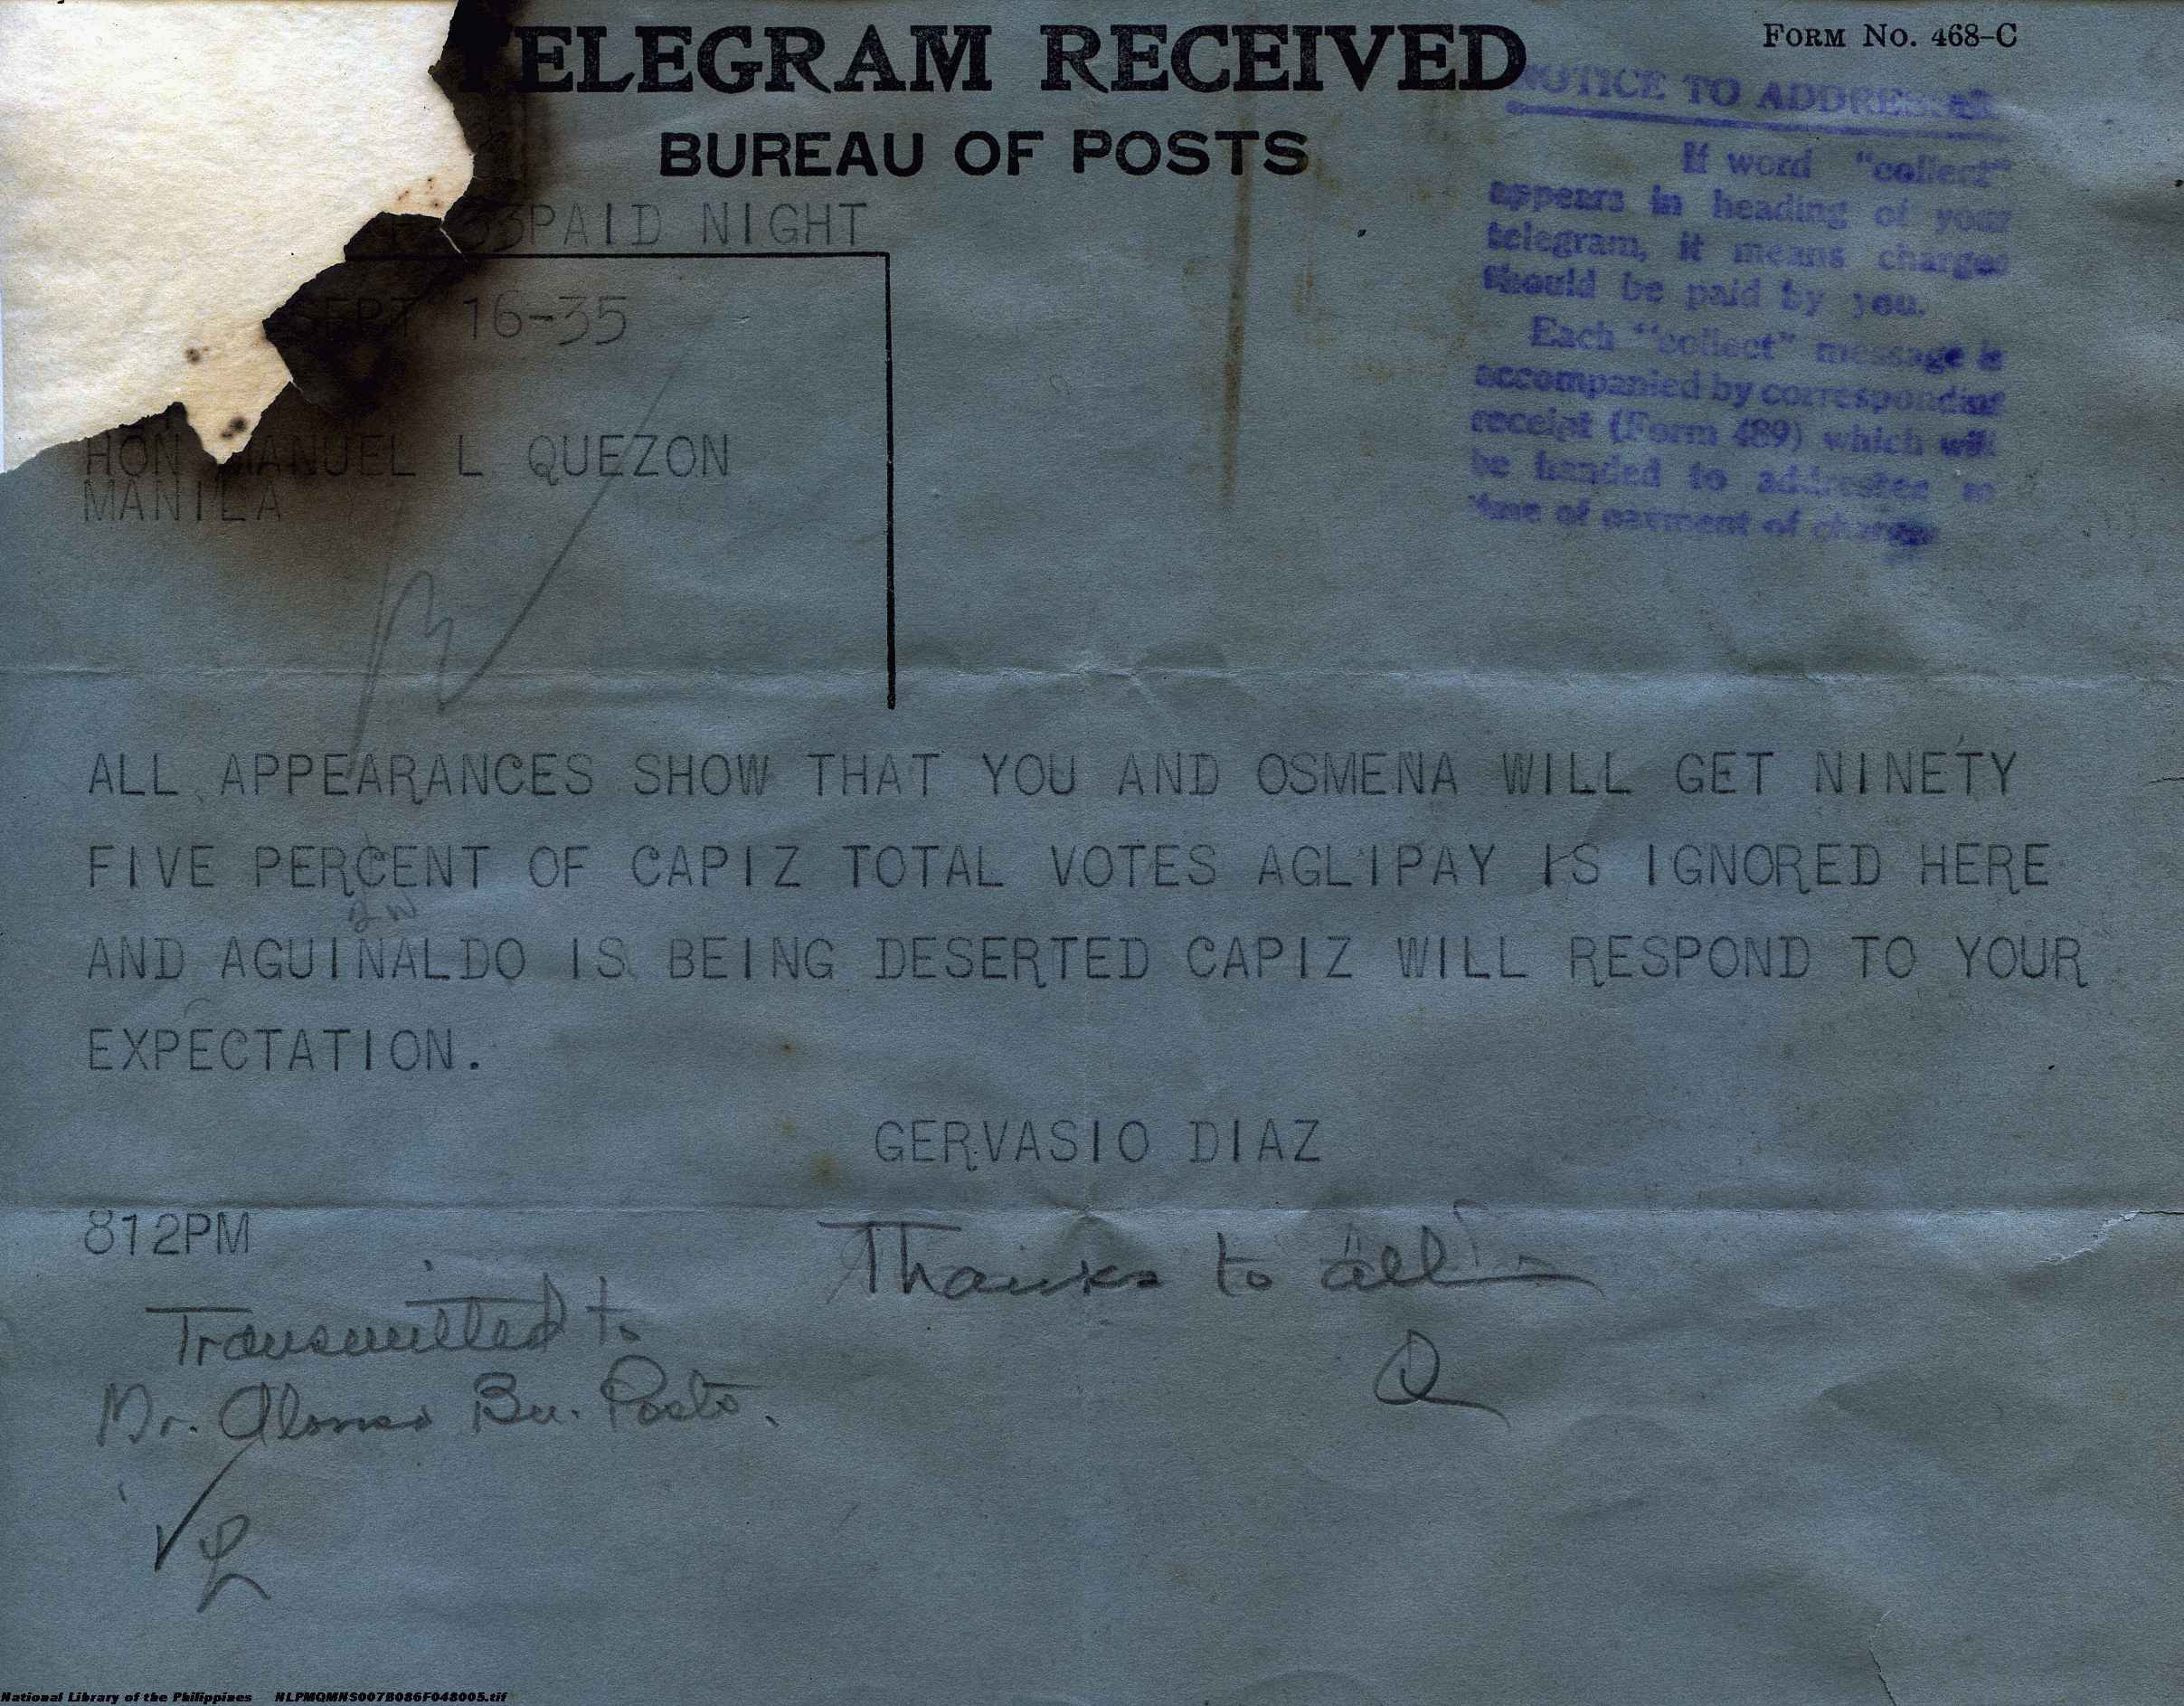 ELEGRAM RECEIVED
FORM No. 468-C
BUREAU OF POSTS
NOTICE TO ADDRESSEE
If word "collect"
appears in heading of your
telegram, it means charges
should be paid by you.
Each "collect" message is
accompanied by corresponding
receipt (Form 489) which will
be handed to addressee
time of payment of charges
33PAID NIGHT
SEPT 16-35
HON MANUEL L QUEZON
MANILA
ALL APPEARANCES SHOW THAT YOU AND OSMENA WILL GET NINETY
FIVE PERCENT OF CAPIZ TOTAL VOTES AGLIPAY IS IGNORED HERE
AND AGUINALDO IS BEING DESERTED CAPIZ WILL RESPOND TO YOUR
EXPECTATION.
GERVASIO DIAZ
812PM
Thanks to all
Q
Transmitted to
Mr. Alonso Bu. Posts.
National Library of the Philippines NLPMQMNS007B086F048005.tif